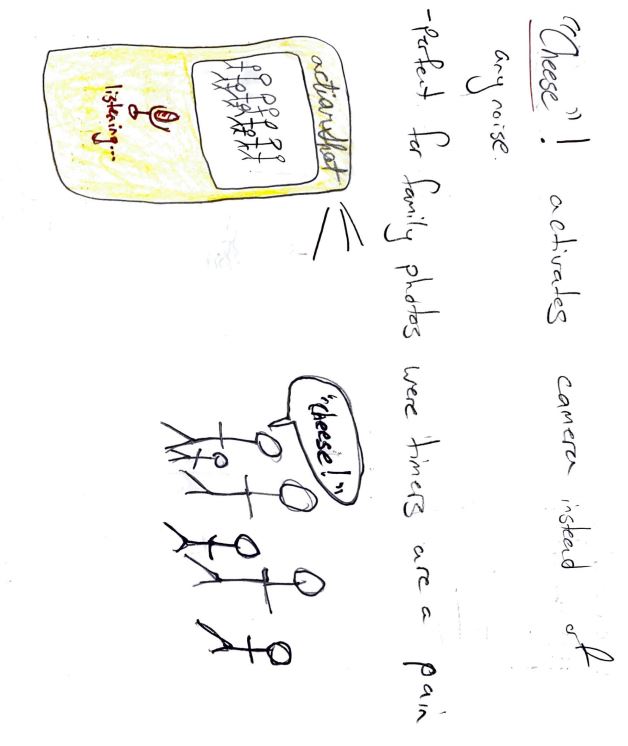 "Cheese"! activates camera instead of
any noise.
-Perfect for family photos were timers are a pain
actionshot
"Cheese!"
listening...